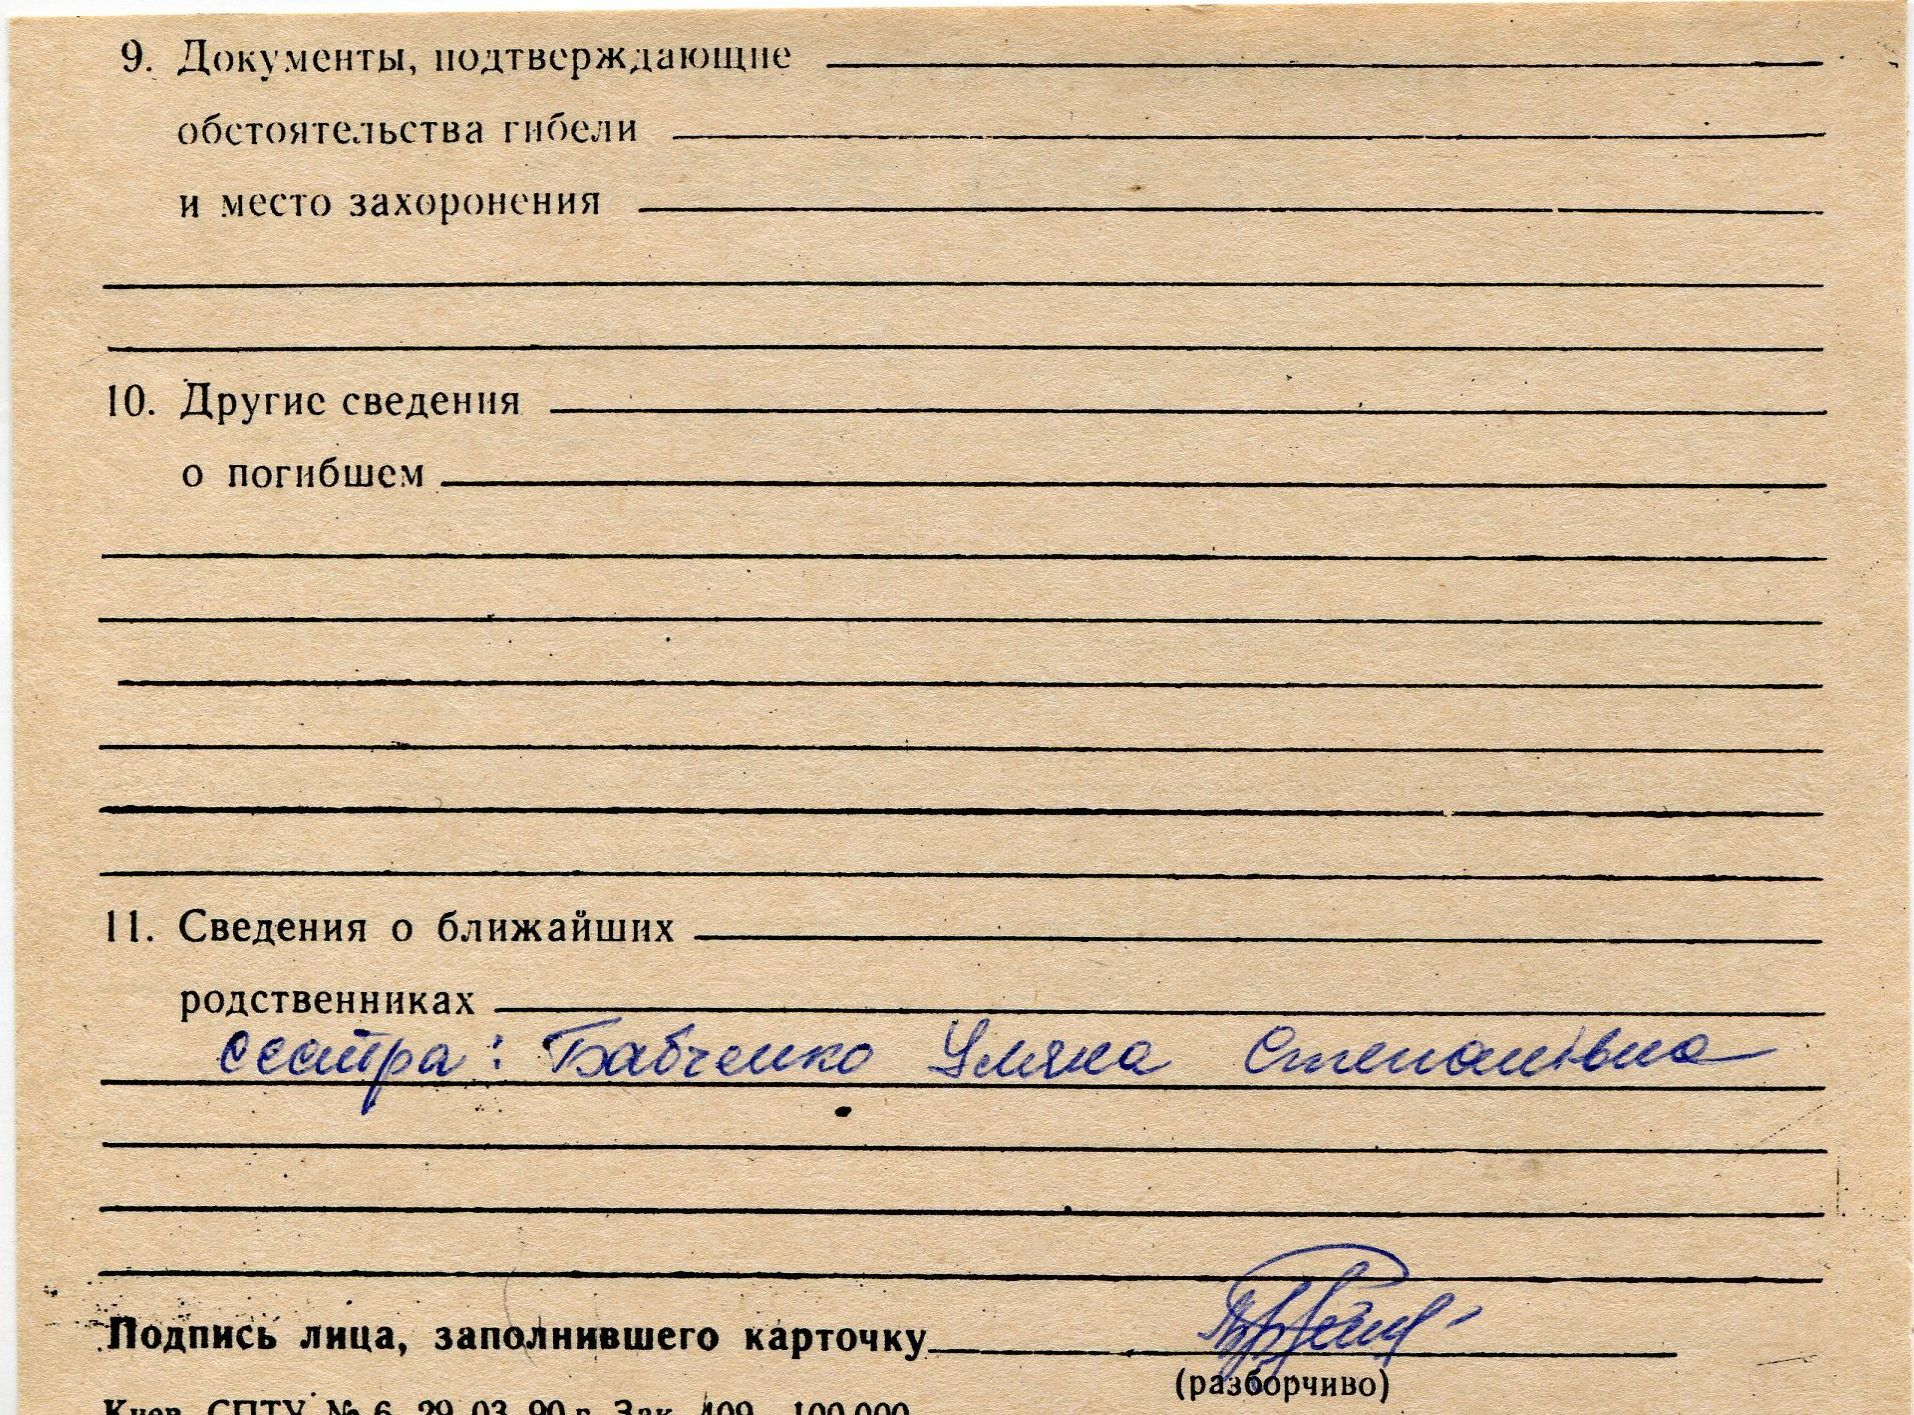 9. Документы, подтверждающие
обстоятельства гибели
и место захоронения
10. Другие сведения
о погибшем
11. Сведения о ближайших
родственниках
сестра: Бабченко Уляна Степанівна
Подпись лица, заполнившего карточку
(разборчиво)
Киев, СПТУ № 6, 29.03.90 г. Зак. 409—100.000